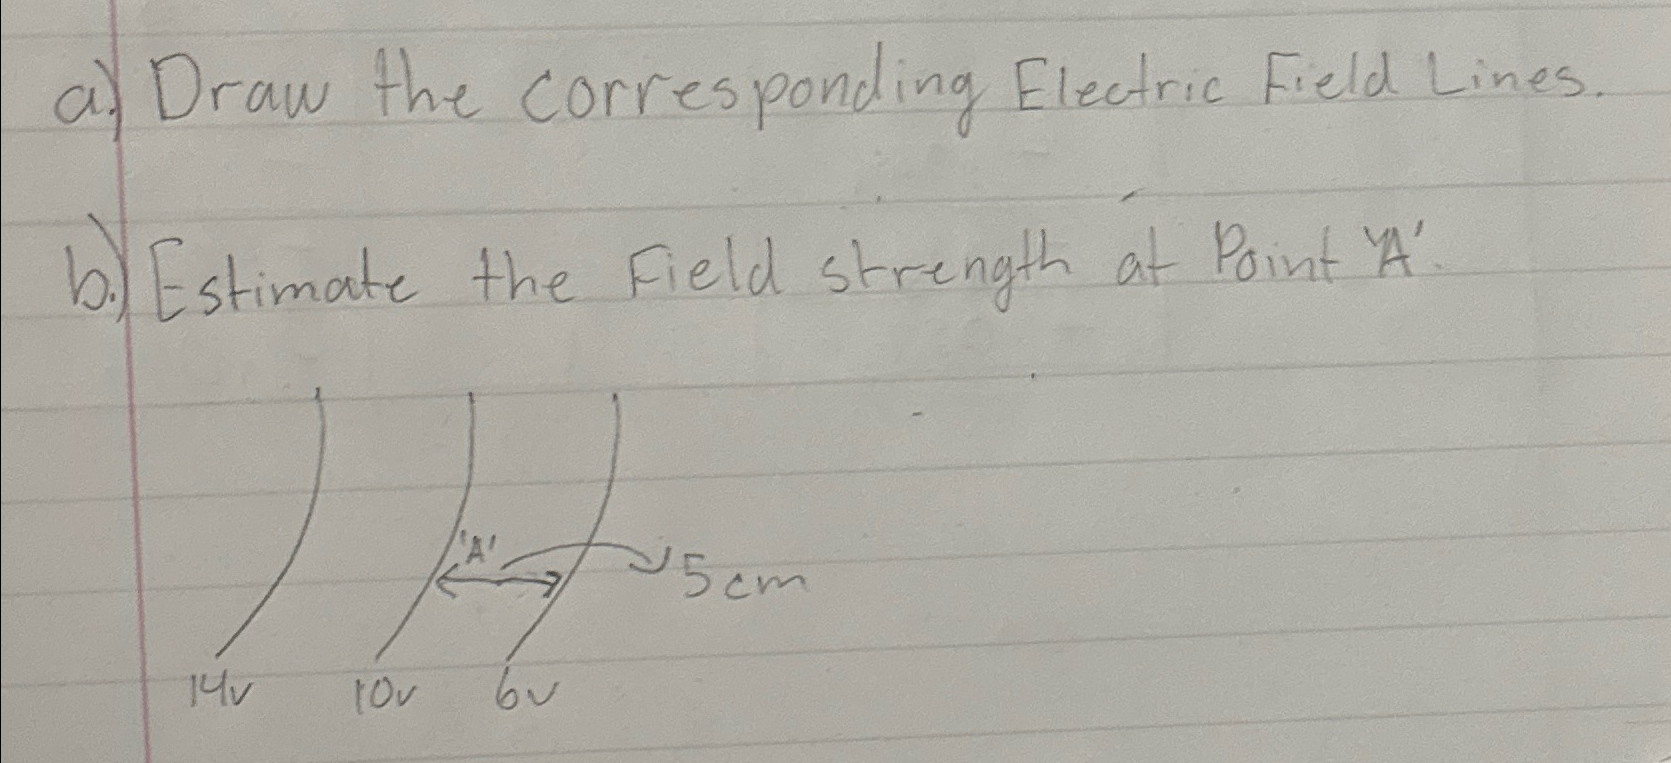 a.) Draw the corresponding Electric Field Lines.
b.) Estimate the Field strength at Point 'A'.
'A'
5cm
14v 10v 6v